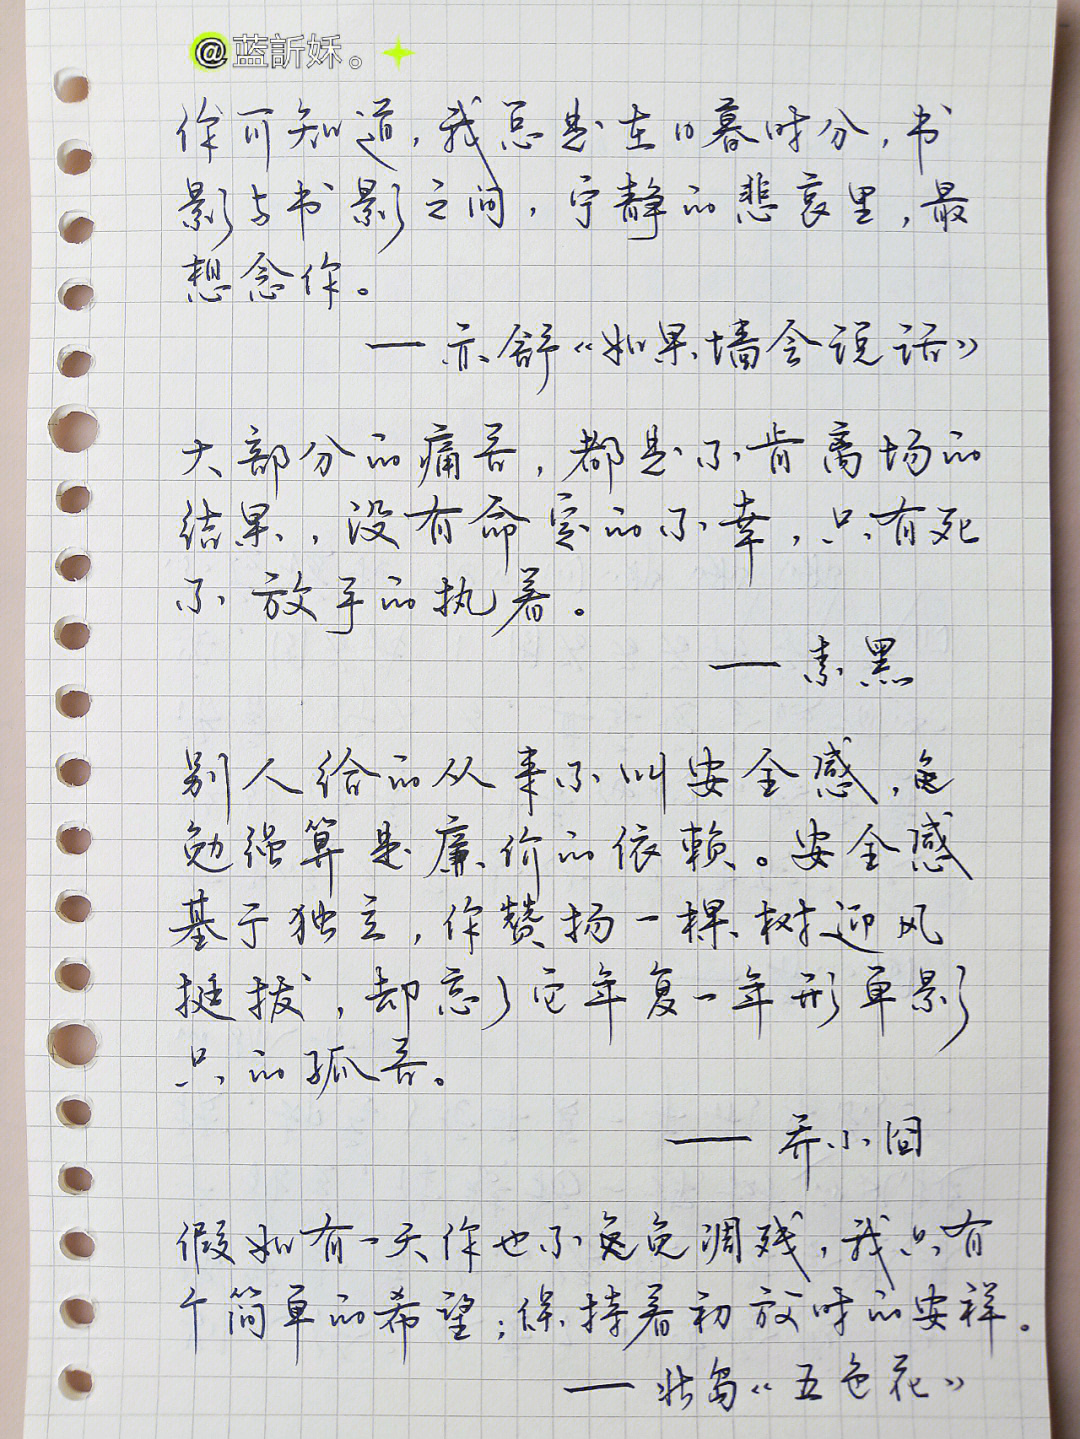 @蓝訢妚。
你可知道,我总是在日暮时分,书
影与书影之间,宁静的悲哀里,最
想念你。
—亦舒《如果墙会说话》
大部分的痛苦,都是不肯离场的
结果,没有命定的不幸,只有死
不放手的执着。
—素黑
别人给的从来不叫安全感,
勉强算是廉价的依赖。安全感
基于独立,你赞扬一棵树迎风
挺拔,却忘了它年复一年形单影
只的孤苦。
——乔小囧
假如有一天你也不免凋残,我只有
个简单的希望;保持着初放时的安祥。
—北岛《五色花》